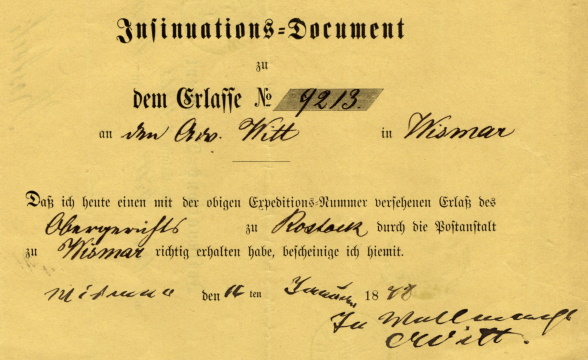 Insinuations-Document
zu
dem Erlasse № 9213.
an den Adv. Witt in Wismar
Daß ich heute einen mit der obigen Expeditions-Nummer versehenen Erlaß des
Obergerichts zu Rostock durch die Postanstalt
zu Wismar richtig erhalten habe, bescheinige ich hiemit.
Wismar den ten Januar 18
In Vollmacht
Witt.